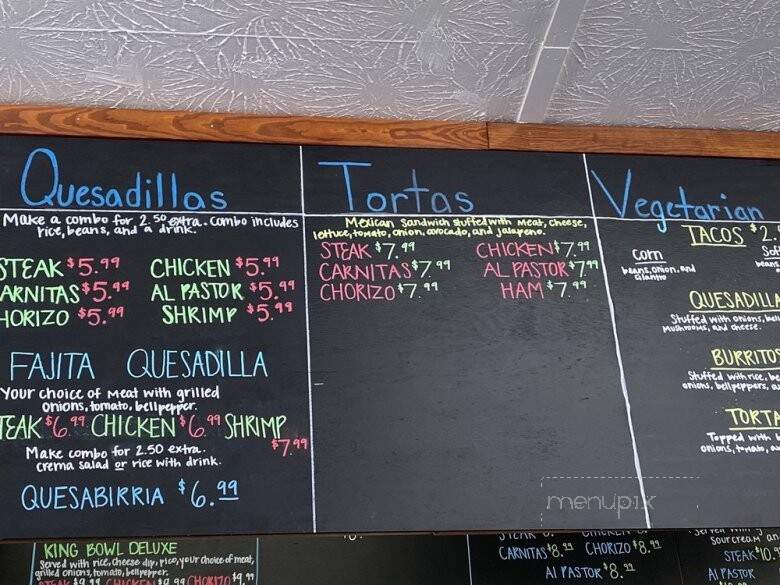 Quesadillas
Make a combo for 2.50 extra. Combo includes
rice, beans, and a drink.
STEAK $5.99 CHICKEN $5.99
CARNITAS $5.99 AL PASTOR $5.99
CHORIZO $5.99 SHRIMP $5.99
FAJITA QUESADILLA
Your choice of meat with grilled
onions, tomato, bellpepper.
STEAK $6.99 CHICKEN $6.99 SHRIMP
$7.99
Make combo for 2.50 extra.
crema salad or rice with drink.
QUESABIRRIA $6.99
Tortas
Mexican Sandwich stuffed with meat, cheese,
lettuce, tomato, onion, avocado, and jalapeno.
STEAK $7.99 CHICKEN $7.99
CARNITAS $7.99 AL PASTOR $7.99
CHORIZO $7.99 HAM $7.99
Vegetarian
TACOS $2.
Corn
beans, onion, and
cilantro
Sof
beans
QUESADILLA
Stuffed with onions, bell
Mushrooms, and cheese.
BURRITOS
Stuffed with rice, be
onions, bellpeppers, a
TORTA
Topped with
onions, tomato, a
menupix
KING BOWL DELUXE
Served with rice, cheese dip, pico, your choice of meat,
grilled onions, tomato, bellpepper.
STEAK $9.99 CHICKEN $9.99 CHORIZO $9.99
STEAK CHICKEN
CARNITAS $8.99 CHORIZO $8.99
Al PASTOR $8.99
Served with
Sour cream an
STEAK $10.
Al PASTOR